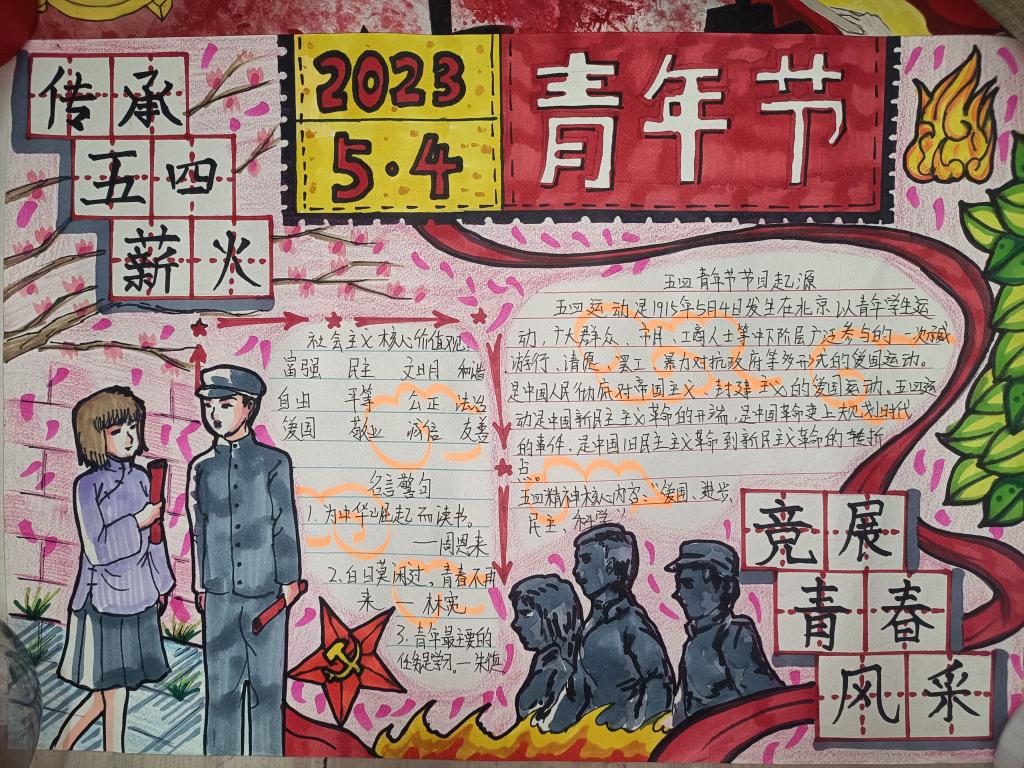 传承
五四
薪火
2023
5·4
青年节
社会主义核心价值观:
富强 民主 文明 和谐
自由 平等 公正 法治
爱国 敬业 诚信 友善
名言警句
1.为中华崛起而读书。
—周恩来
2.白日莫闲过,青春不再
来 — 林宽
3.青年最主要的
任务是学习.—朱德
五四青年节节目起源
五四运动是1919年5月4日发生在北京以青年学生运
动,广大群众、市民、工商人士等中下阶层广泛参与的一次示威
游行、请愿、罢工、暴力对抗政府等多形式的爱国运动。
是中国人民彻底对帝国主义、封建主义的爱国运动。五四运
动是中国新民主主义革命的开端,是中国革命史上大规划时代
的事件,是中国旧民主主义革命到新民主主义革命的转折
点。
五四精神核心内容:"爱国、进步
民主、科学"
竞展
青春
风采